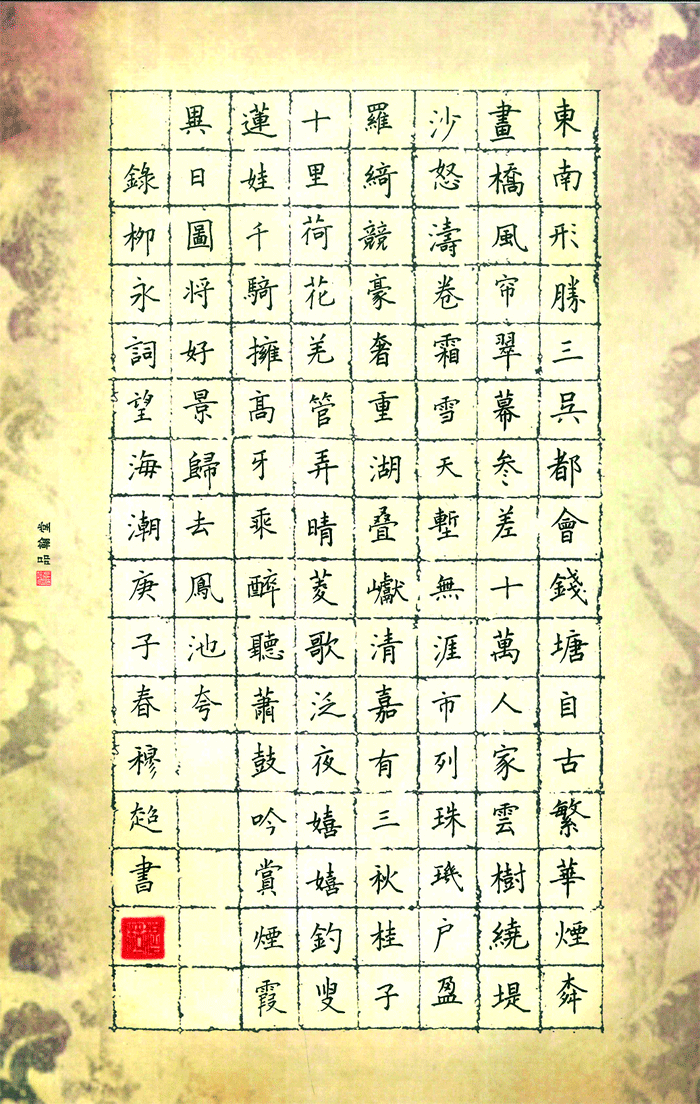 東南形勝三吳都會錢塘自古繁華煙
畫橋風帘翠幕参差十萬人家雲樹繞堤
沙怒濤卷霜雪天塹無涯市列珠璣户盈
羅綺競豪奢重湖叠巘清嘉有三秋桂子
十里荷花羌管弄晴菱歌泛夜嬉嬉釣叟
蓮娃千騎擁髙牙乘醉聽蕭鼓吟賞煙霞
異日圖将好景歸去鳳池夸
錄栁永詞望海潮庚子春穆超書
品翰堂